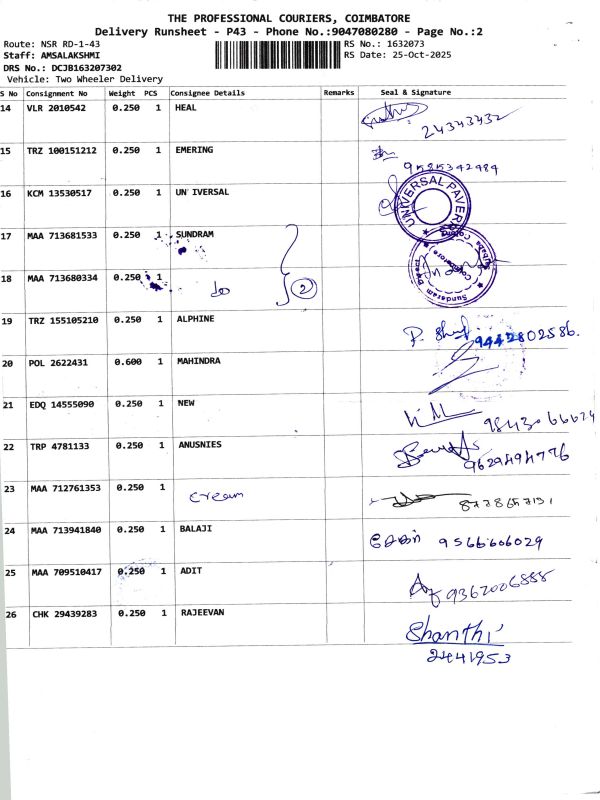 THE PROFESSIONAL COURIERS, COIMBATORE
Delivery Runsheet - P43 - Phone No.:9047080280 - Page No.:2
Route: NSR RD-1-43 RS No.: 1632073
Staff: AMSALAKSHMI RS Date: 25-Oct-2025
DRS No.: DCJB163207302
Vehicle: Two Wheeler Delivery
S No Consignment No Weight PCS Consignee Details Remarks Seal & Signature
14 VLR 2010542 0.250 1 HEAL
24343432
15 TRZ 100151212 0.250 1 EMERING
9585342984
16 KCM 13530517 0.250 1 UN IVERSAL
UNIVERSAL PAVER
17 MAA 713681533 0.250 1 SUNDRAM
18 MAA 713680334 0.250 1 do 2
Sundaram
Coimbatore
19 TRZ 155105210 0.250 1 ALPHINE
9442802586.
20 POL 2622431 0.600 1 MAHINDRA
21 EDQ 14555090 0.250 1 NEW
9843066624
22 TRP 4781133 0.250 1 ANUSNIES
9629494776
23 MAA 712761353 0.250 1 cream
24 MAA 713941840 0.250 1 BALAJI
சேகர் 9566606029
25 MAA 709510417 0.250 1 ADIT
9362006888
26 CHK 29439283 0.250 1 RAJEEVAN
Shanthi
2441953